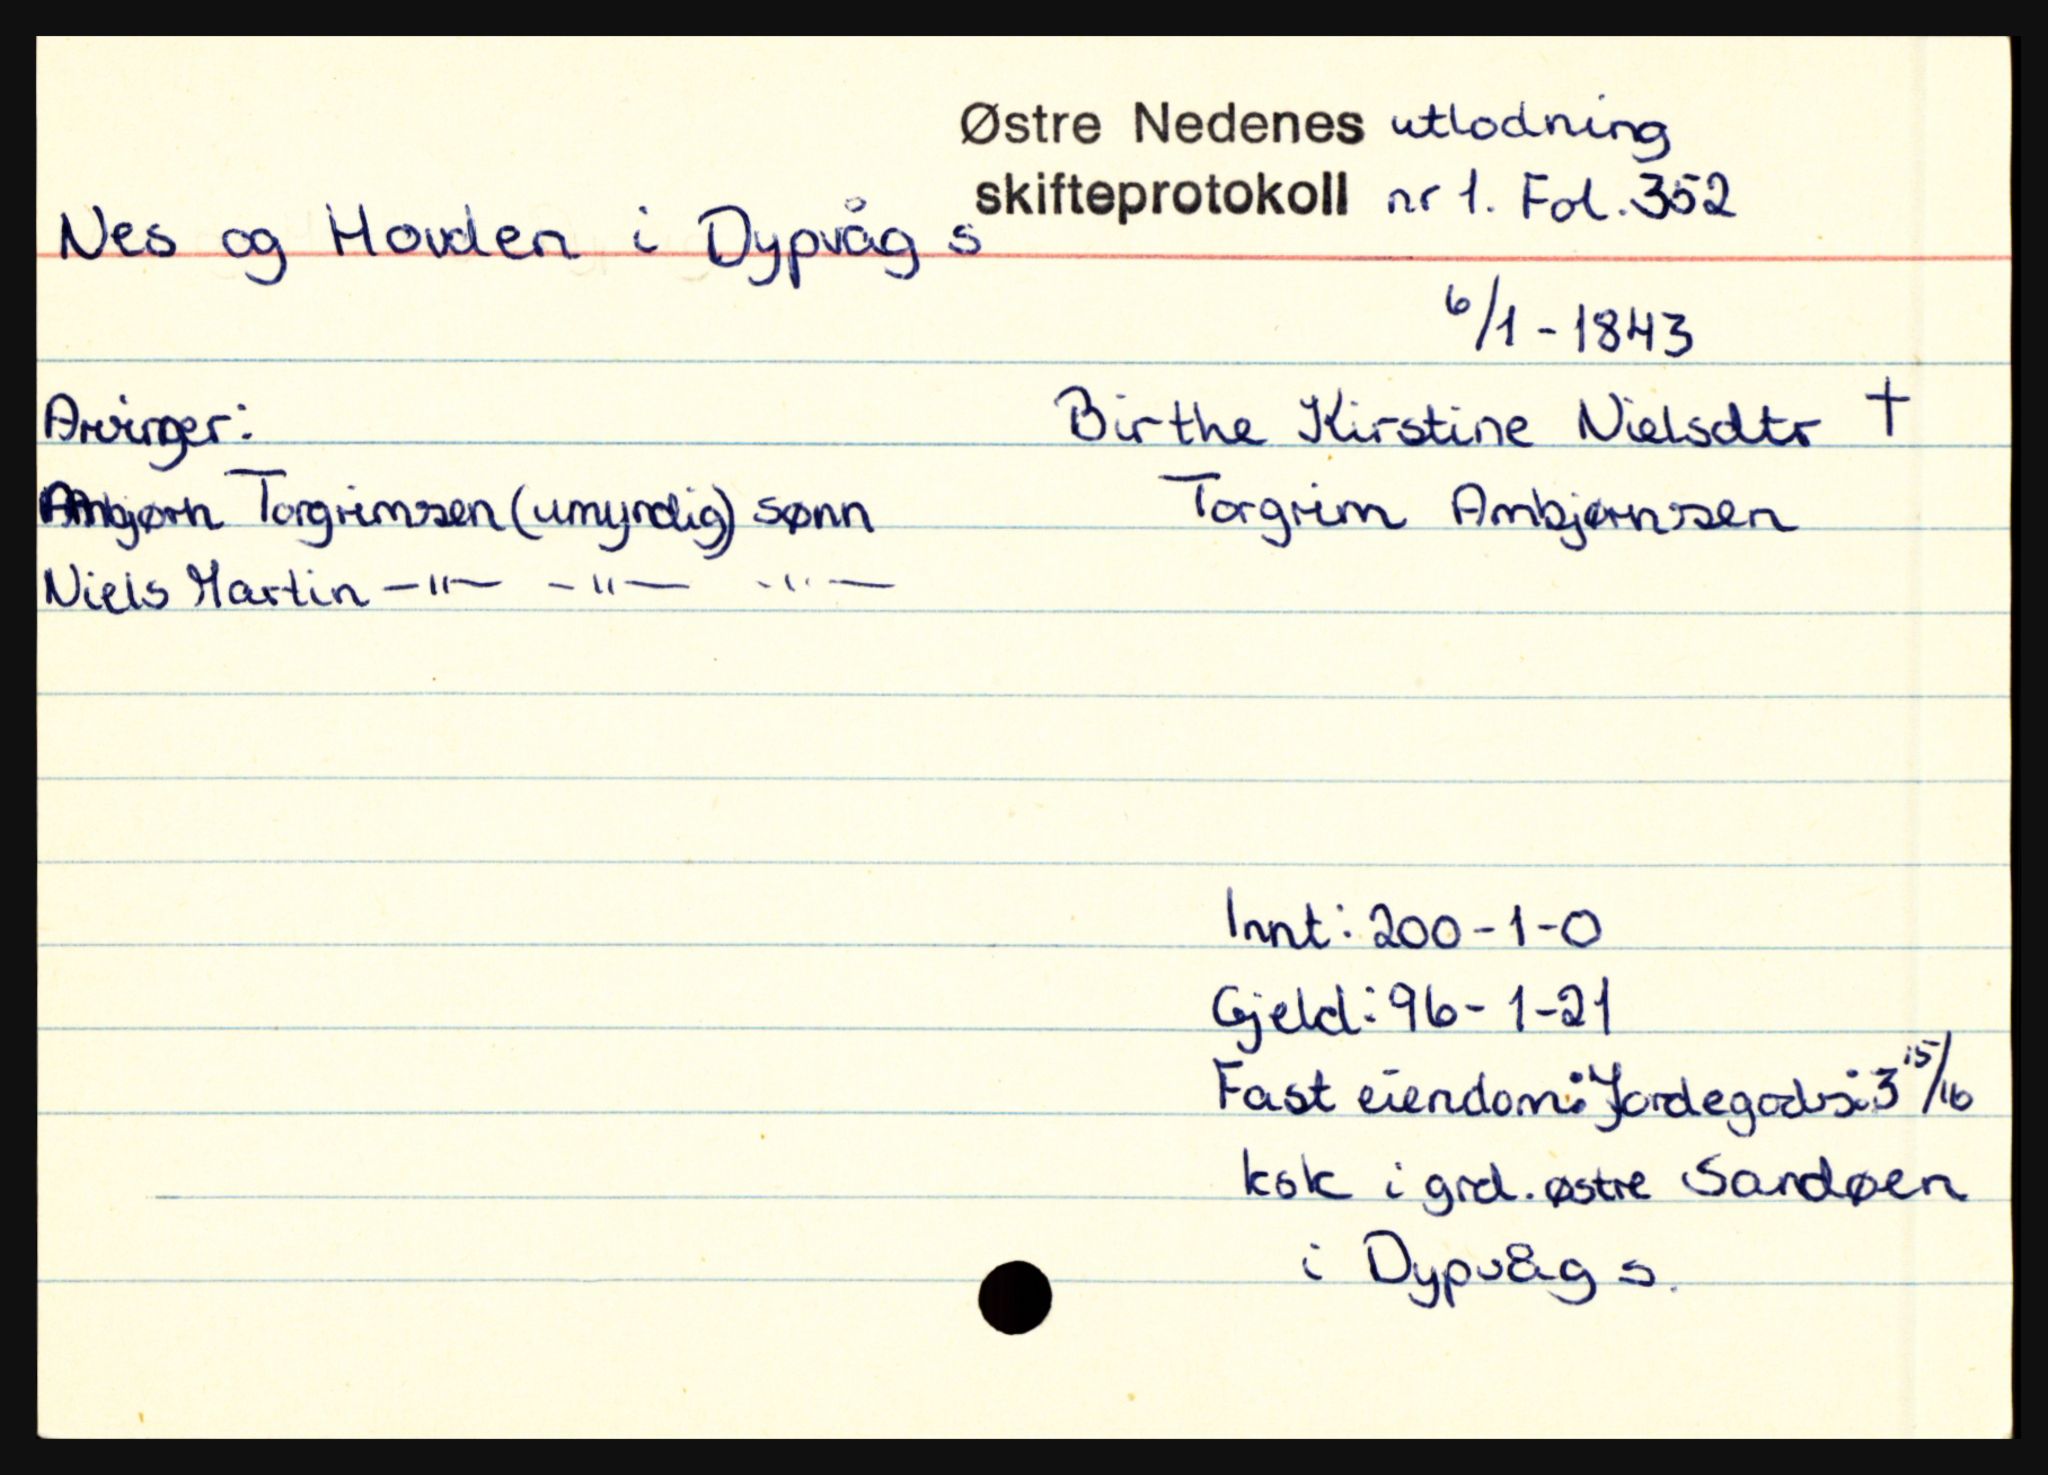 Østre Nedenes utlodning
skifteprotokoll nr 1. Fol. 352
Nes og Hovden i Dypvåg s
6/1 - 1843
Arvinger:
Birthe Kirstine Nielsdtr †
Ambjørn Torgrimsen (umyndig) sønn
Torgrim Ambjørnsen
Niels Martin —"— —"— —"—
Innt: 200-1-0
Gjeld: 96-1-21
Fast eiendom: Jordegods: 3 15/16
ksk i grd. østre Sandøen
i Dypvåg s.